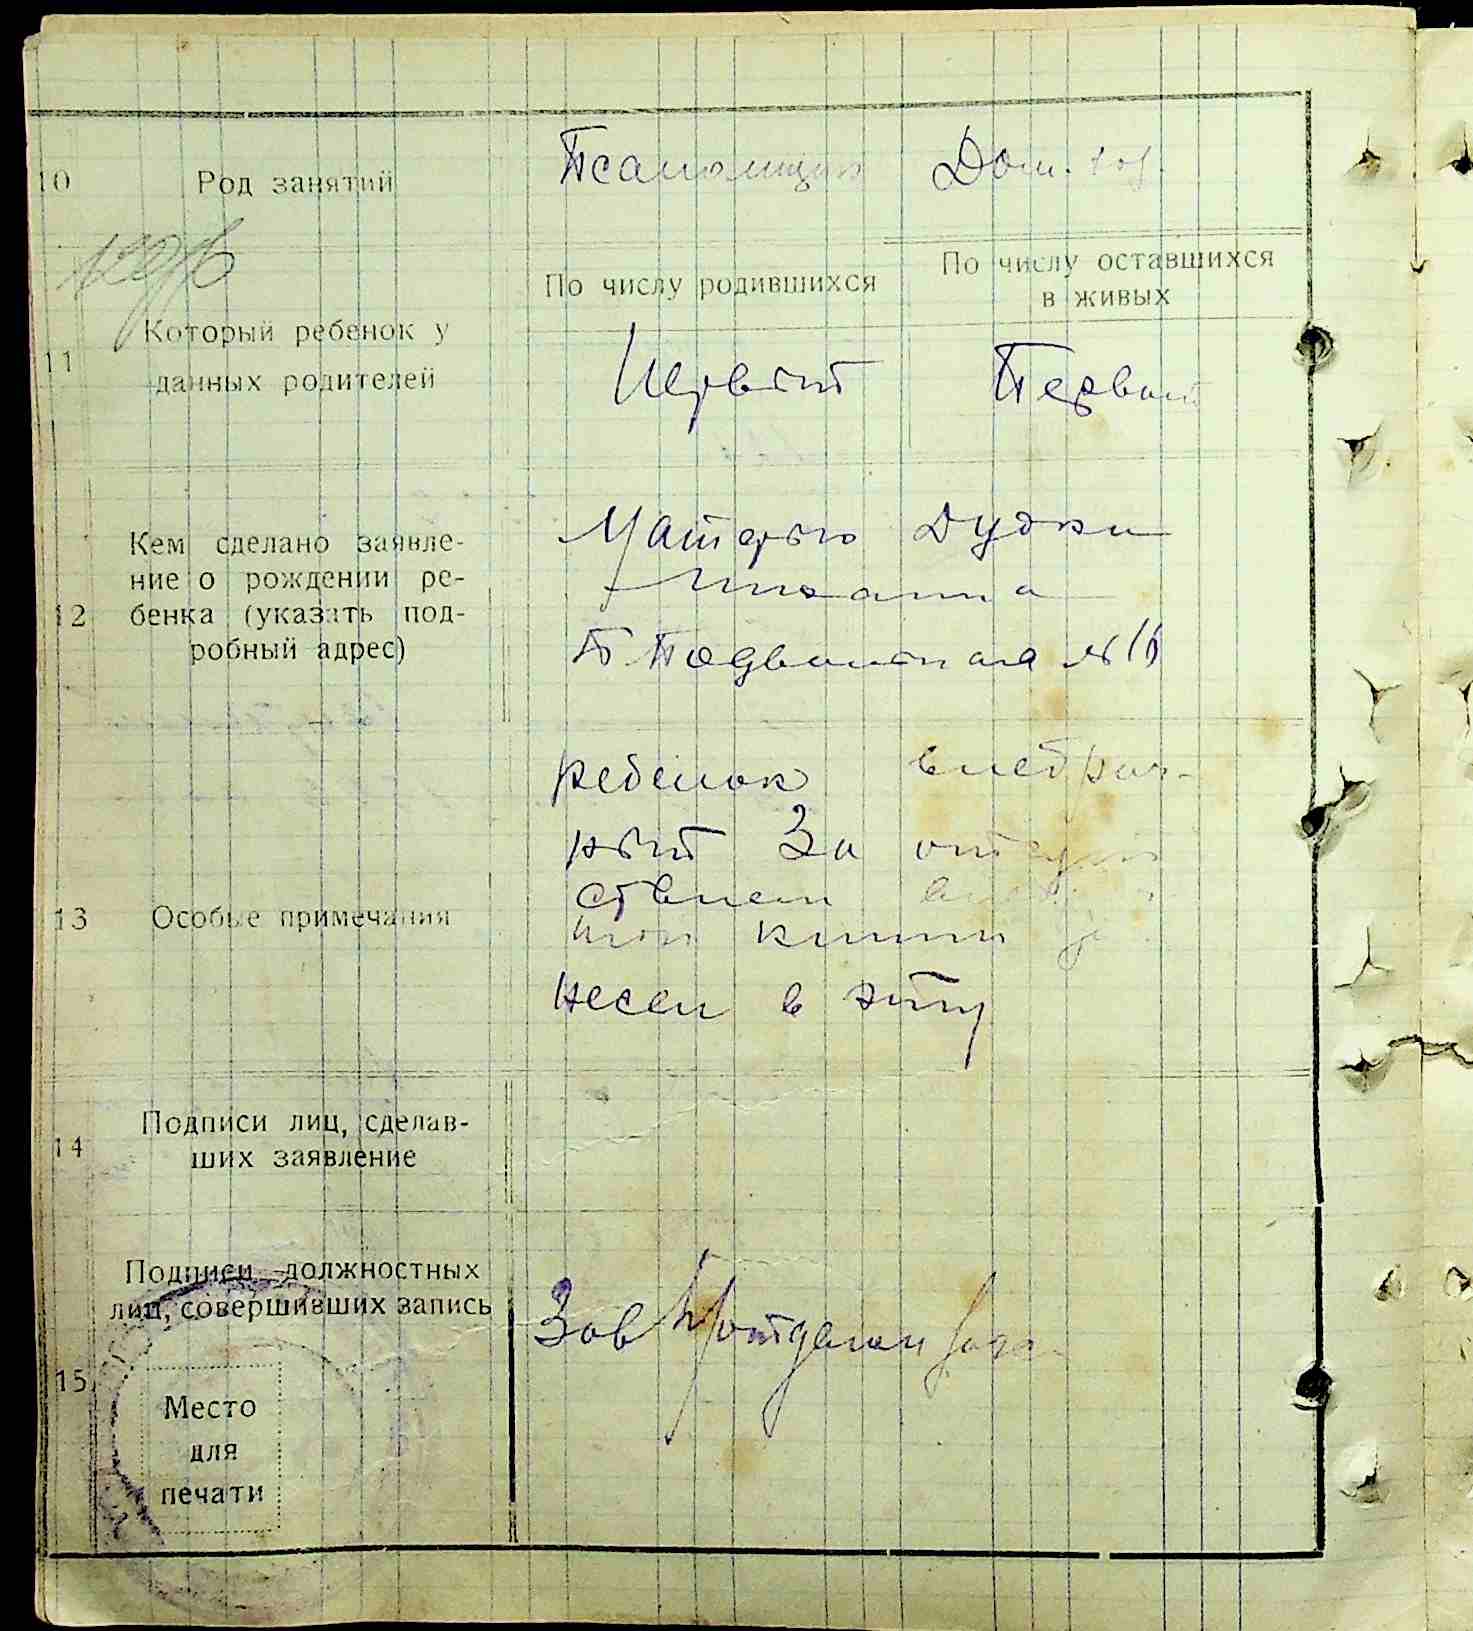 10 Род занятий Псаломщик Дом. хоз.
По числу родившихся По числу оставшихся
в живых
11 Который ребенок у
данных родителей Первый Первый
12 Кем сделано заявле-
ние о рождении ре-
бенка (указать под-
робный адрес)
Матерью Дудки
№ 16
13 Особые примечания
Ребенок внебрач-
ный За отсут
ствием
книги
несен в эту
14 Подписи лиц, сделав-
ших заявление
Подписи должностных
лиц, совершивших запись
15 Зав
Место
для
печати